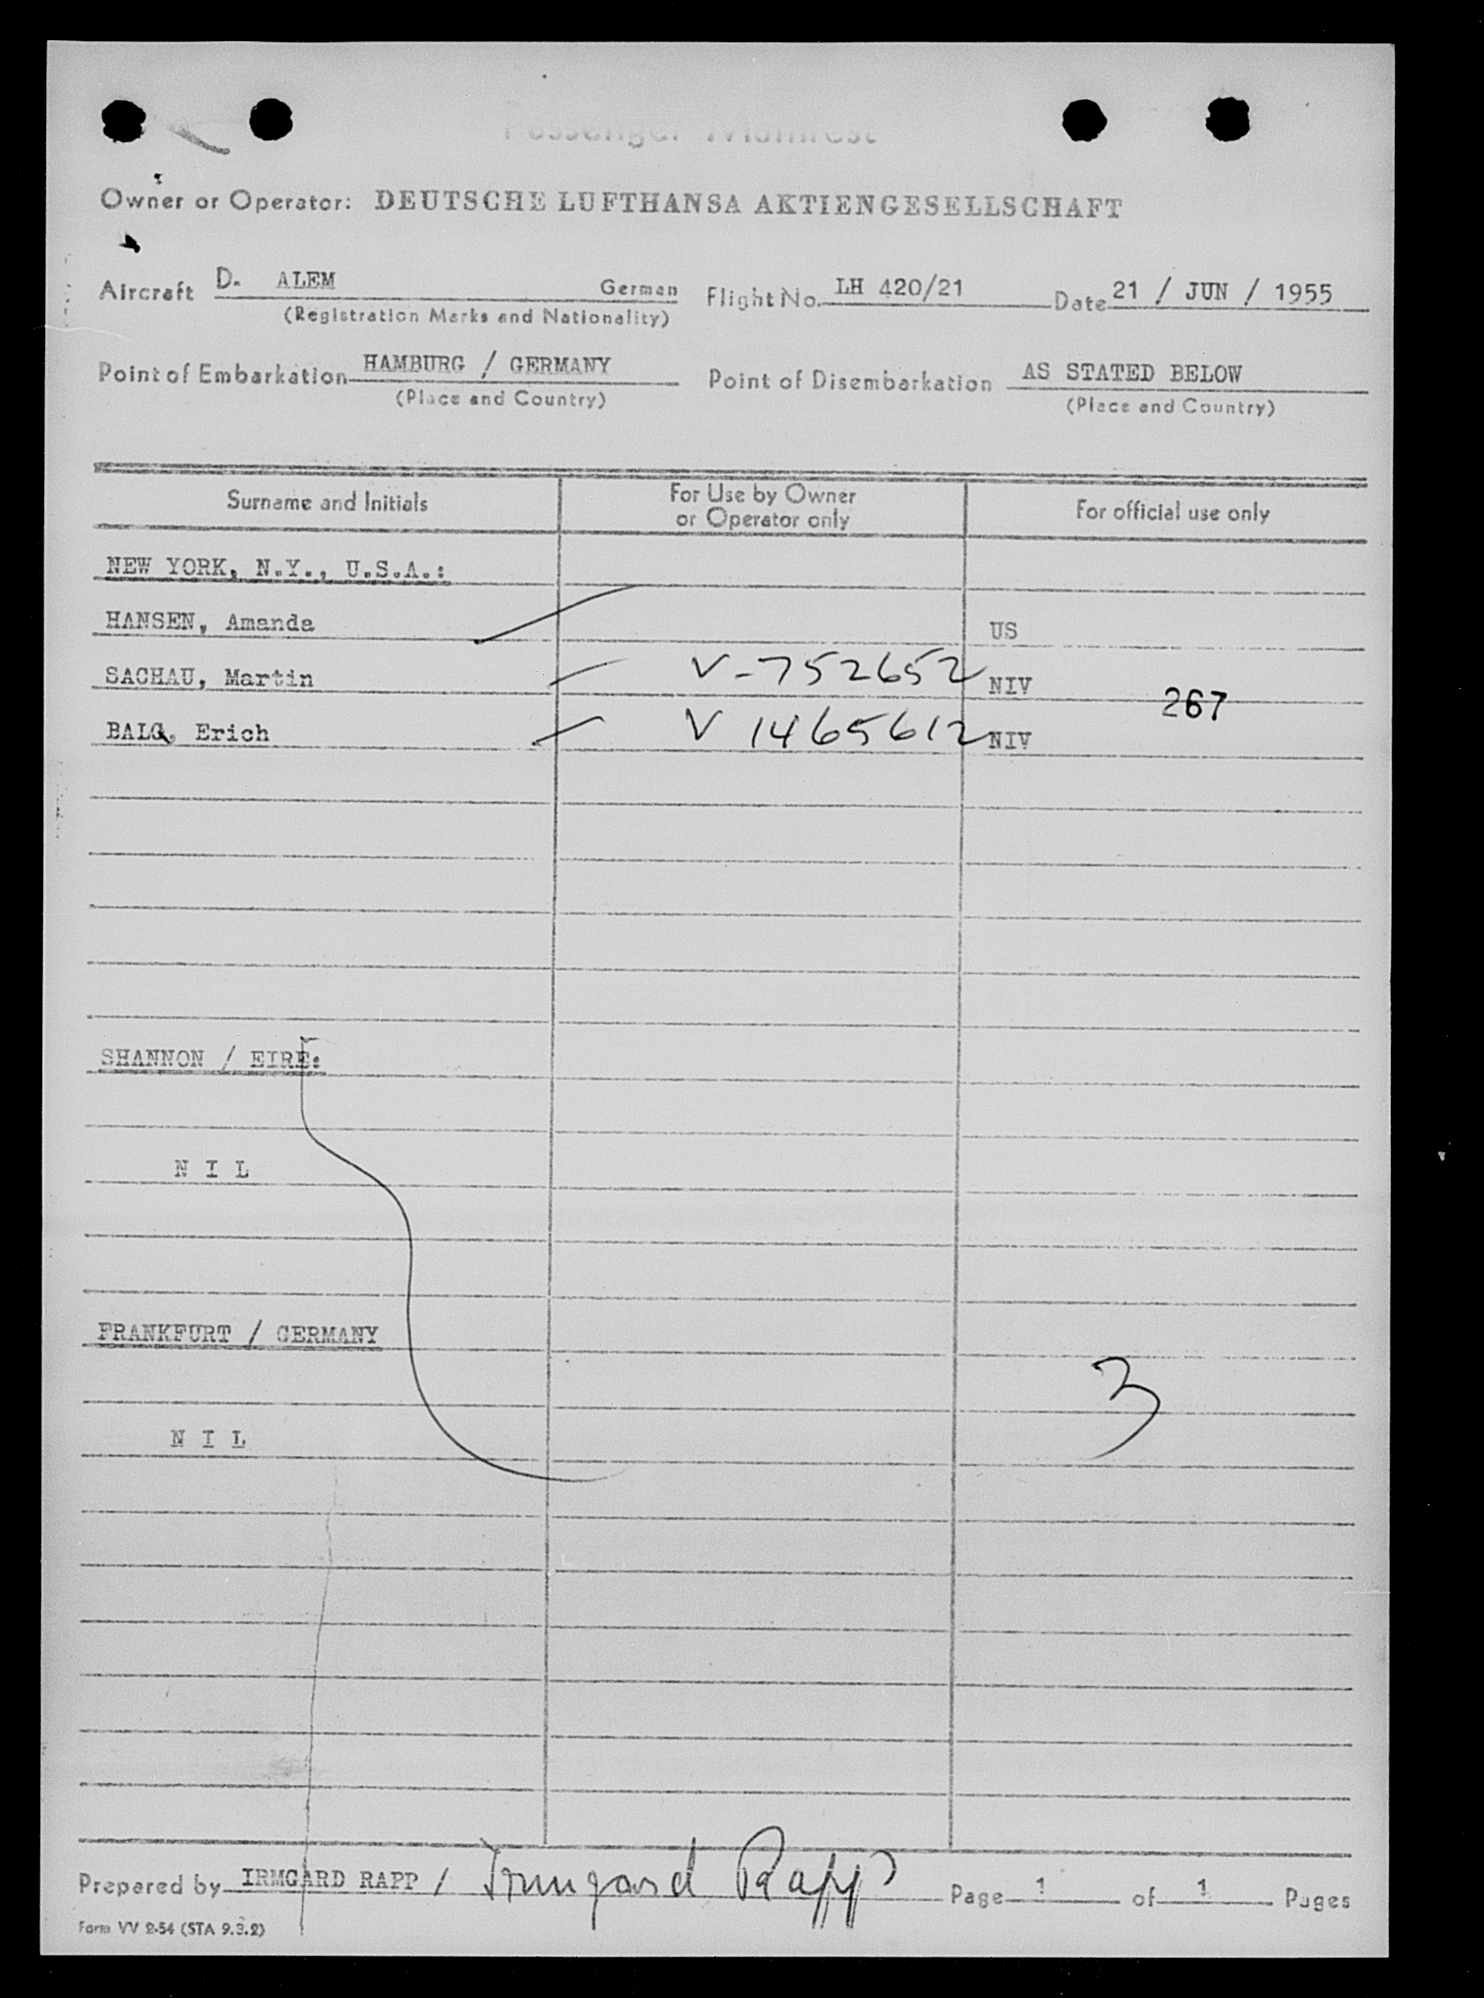 Passenger Manifest
Owner or Operator: DEUTSCHE LUFTHANSA AKTIENGESELLSCHAFT
Aircraft D. ALEM German Flight No. LH 420/21 Date 21 / JUN / 1955
(Registration Marks and Nationality)
Point of Embarkation HAMBURG / GERMANY Point of Disembarkation AS STATED BELOW
(Place and Country) (Place and Country)
Surname and Initials For Use by Owner or Operator only For official use only
NEW YORK, N.Y., U.S.A.:
HANSEN, Amanda US
SACHAU, Martin V-752652 NIV
267
Erich V 1465612 NIV
SHANNON / EIRE:
N I L
FRANKFURT / GERMANY
3
N I L
Prepared by IRMGARD RAPP / Irmgard Rapp Page 1 of 1 Pages
Form VV 2-54 (STA 9.3.2)